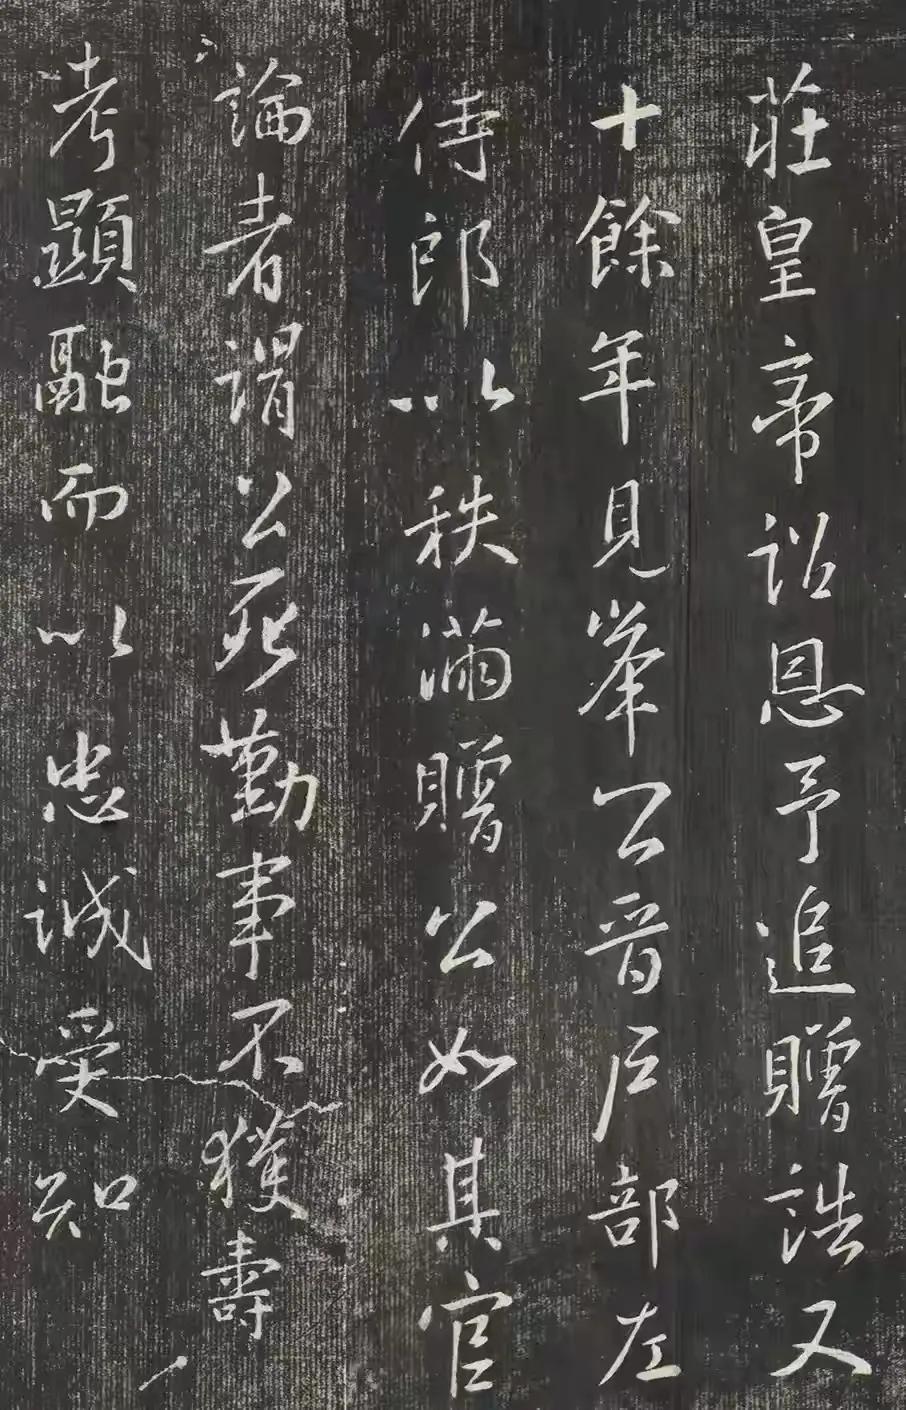 莊皇帝詔恩予追贈誥又
十餘年見峯公晉戶部左
侍郎以秩滿贈公如其官
論者謂公死勤事不獲壽
考顯融而以忠誠受知